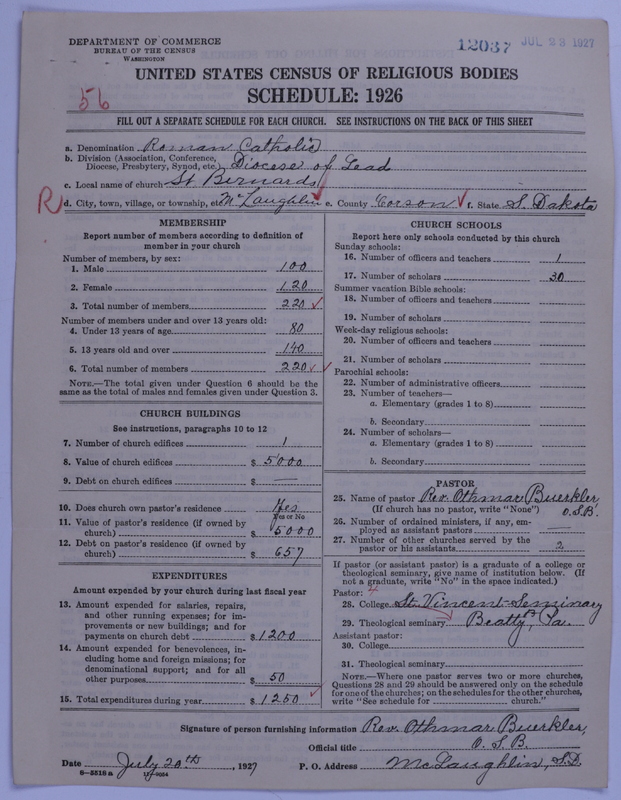 DEPARTMENT OF COMMERCE
BUREAU OF THE CENSUS
WASHINGTON
12037 JUL 23 1927
UNITED STATES CENSUS OF RELIGIOUS BODIES
SCHEDULE: 1926
56
FILL OUT A SEPARATE SCHEDULE FOR EACH CHURCH. SEE INSTRUCTIONS ON THE BACK OF THIS SHEET
a. Denomination Roman Catholic
b. Division (Association, Conference, Diocese, Presbytery, Synod, etc.) Diocese of Lead
c. Local name of church St. Bernards
R
d. City, town, village, or township, etc. McLaughlin e. County Corson f. State S. Dakota
MEMBERSHIP
Report number of members according to definition of
member in your church
Number of members, by sex:
1. Male 100
2. Female 120
3. Total number of members 220
Number of members under and over 13 years old:
4. Under 13 years of age 80
5. 13 years old and over 140
6. Total number of members 220
NOTE.—The total given under Question 6 should be the
same as the total of males and females given under Question 3.
CHURCH BUILDINGS
See instructions, paragraphs 10 to 12
7. Number of church edifices 1
8. Value of church edifices $ 5000
9. Debt on church edifices $ —
10. Does church own pastor's residence Yes
Yes or No
11. Value of pastor's residence (if owned by
church) $ 5000
12. Debt on pastor's residence (if owned by
church) $ 657
EXPENDITURES
Amount expended by your church during last fiscal year
13. Amount expended for salaries, repairs,
and other running expenses; for im-
provements or new buildings; and for
payments on church debt $ 1200
14. Amount expended for benevolences, in-
cluding home and foreign missions; for
denominational support; and for all
other purposes $ 50
15. Total expenditures during year $ 1250
CHURCH SCHOOLS
Report here only schools conducted by this church
Sunday schools:
16. Number of officers and teachers 1
17. Number of scholars 30
Summer vacation Bible schools:
18. Number of officers and teachers
19. Number of scholars
Week-day religious schools:
20. Number of officers and teachers
21. Number of scholars
Parochial schools:
22. Number of administrative officers
23. Number of teachers—
a. Elementary (grades 1 to 8)
b. Secondary
24. Number of scholars—
a. Elementary (grades 1 to 8)
b. Secondary
PASTOR
25. Name of pastor Rev. Othmar Buerkler,
(If church has no pastor, write "None") O.S.B.
26. Number of ordained ministers, if any, em-
ployed as assistant pastors —
27. Number of other churches served by the
pastor or his assistants 2
If pastor (or assistant pastor) is a graduate of a college or
theological seminary, give name of institution below. (If
not a graduate, write "No" in the space indicated.)
Pastor:
28. College St. Vincent Seminary
29. Theological seminary Beatty P., Pa.
Assistant pastor:
30. College
31. Theological seminary
NOTE.—Where one pastor serves two or more churches,
Questions 28 and 29 should be answered only on the schedule
for one of the churches; on the schedules for the other churches,
write "See schedule for church."
Signature of person furnishing information Rev. Othmar Buerkler,
Official title O. S. B.
Date July 20th, 1927 P. O. Address McLaughlin, S.D.
8-5316a